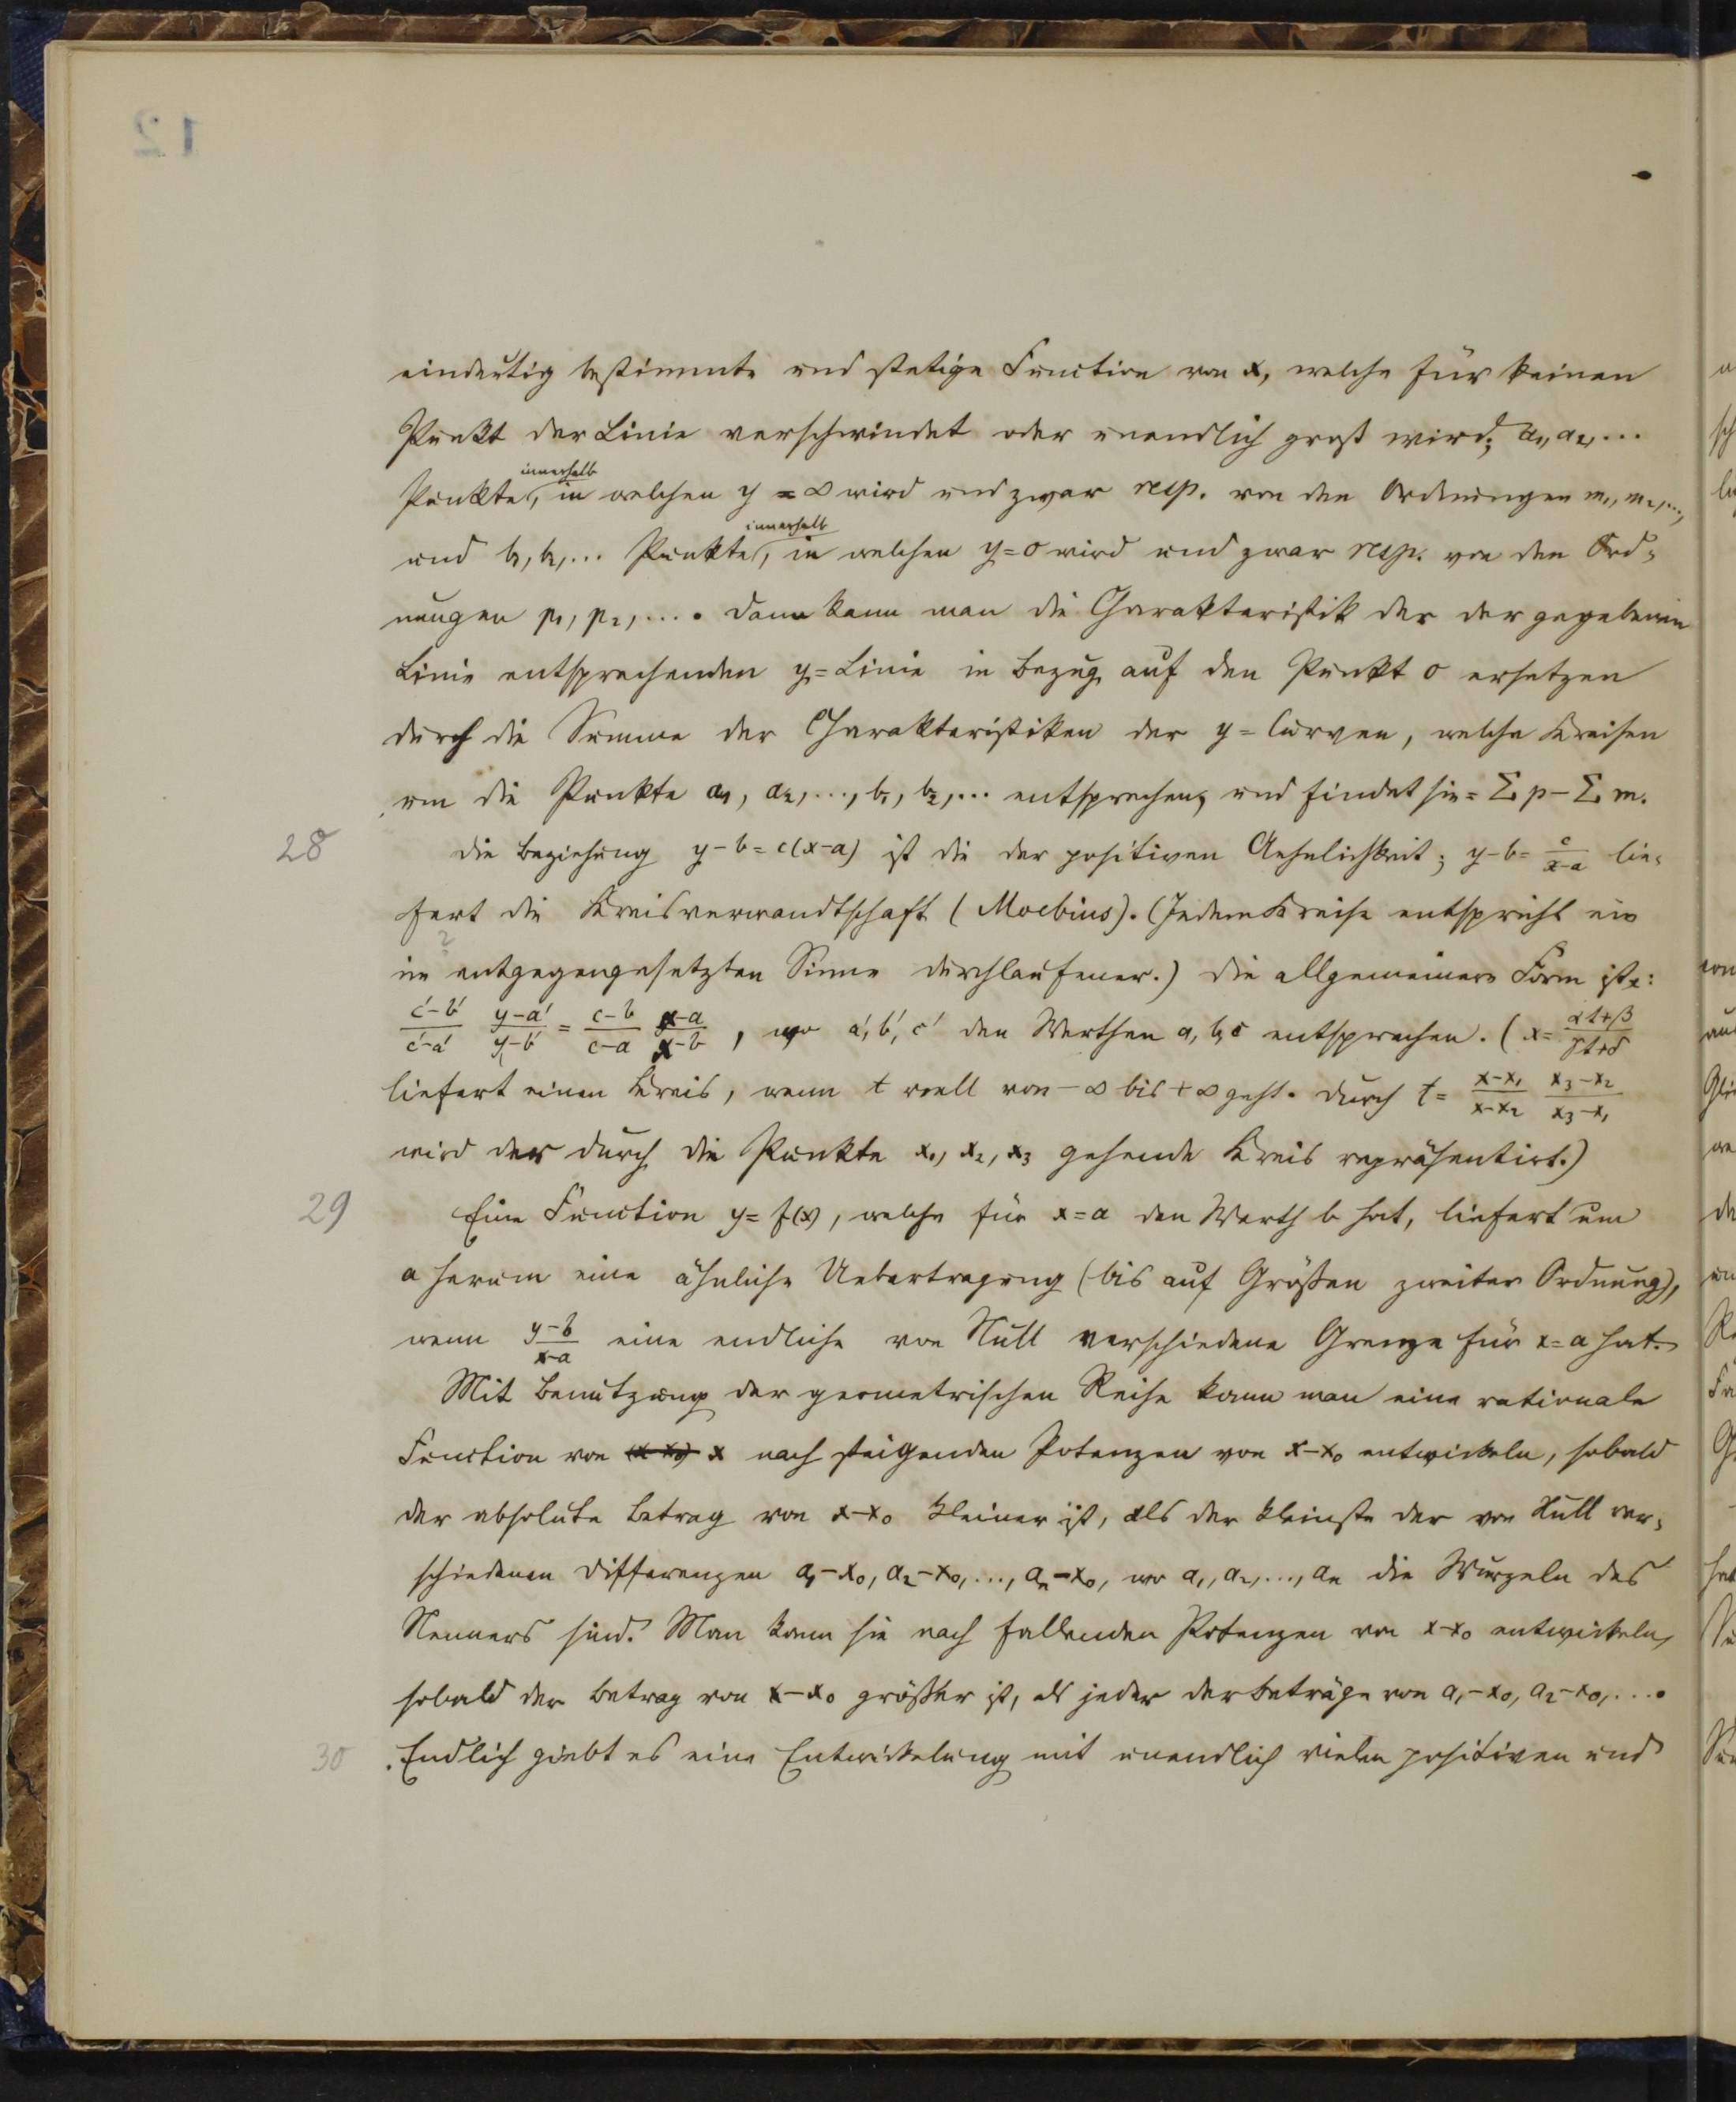 eindeutig bestimmte und stetige Function von x, welche für keinen
Punkt der Linie verschwindet oder unendlich groß wird; a₁, a₂, ...
innerhalb
Punkte, in welchen y = ∞ wird und zwar resp. von den Ordnungen m₁, m₂, ...,
innerhalb
und b₁, b₂, ... Punkte, in welchen y = 0 wird und zwar resp. von den Ord=
nungen p₁, p₂, .... Dann kann man die Charakteristik der der gegebenen
Linie entsprechenden y=Linie in Bezug auf den Punkt 0 ersetzen
durch die Summe der Charakteristiken der y=Curven, welche Kreisen
um die Punkte a₁, a₂, ..., b₁, b₂, ... entsprechen, und findet sie = Σ p − Σ m.
28 Die Beziehung y − b = c(x−a) ist die der positiven Aehnlichkeit; y−b = c/(x−a) lie=
fert die Kreisverwandtschaft (Moebius). (Jedem Kreise entspricht ein
?
im entgegengesetzten Sinne durchlaufener.) Die allgemeinere Form ist:
(c'−b')/(c'−a') (y−a')/(y−b') = (c−b)/(c−a) (x−a)/(x−b), wo a', b', c' den Werthen a, b, c entsprechen. (x = (αt+β)/(γt+δ)
liefert einen Kreis, wenn t reell von −∞ bis +∞ geht. Durch t = (x−x₁)/(x−x₂) (x₃−x₂)/(x₃−x₁)
wird der durch die Punkte x₁, x₂, x₃ gehende Kreis repräsentirt.)
29 Eine Function y = f(x), welche für x = a den Werth b hat, liefert um
a herum eine ähnliche Uebertragung (bis auf Größen zweiter Ordnung),
wenn (y−b)/(x−a) eine endliche von Null verschiedene Grenze für x = a hat.
Mit Benutzung der geometrischen Reihe kann man eine rationale
Function von x nach steigenden Potenzen von x−x₀ entwickeln, sobald
der absolute Betrag von x−x₀ kleiner ist, als der kleinste der von Null ver=
schiedenen Differenzen a₁−x₀, a₂−x₀, ..., aₙ−x₀, wo a₁, a₂, ..., aₙ die Wurzeln des
Nenners sind. Man kann sie nach fallenden Potenzen von x−x₀ entwickeln,
sobald der Betrag von x−x₀ größer ist, als jeder der Beträge von a₁−x₀, a₂−x₀, ....
30 Endlich giebt es eine Entwickelung mit unendlich vielen positiven und